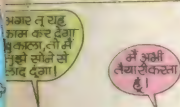 अगर तू यह
काम कर देगा
काला, तो मैं
तुझे सोने से
लाद दूंगा।
मैं अभी
तैयारी करता
हूं।